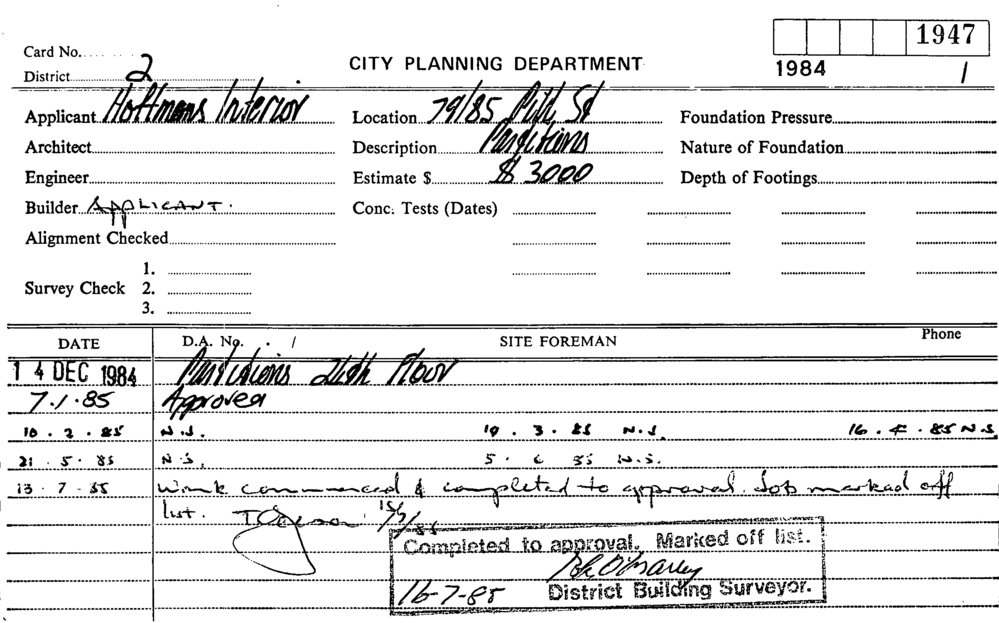 1947
Card No.
District 2
CITY PLANNING DEPARTMENT
1984 /
Applicant Hoffmans Interior
Location 79/85 Pitt St
Foundation Pressure
Architect
Description Partitions
Nature of Foundation
Engineer
Estimate $ $ 3000
Depth of Footings
Builder APPLICANT.
Conc. Tests (Dates)
Alignment Checked
1.
Survey Check 2.
3.
DATE D.A. No. . / SITE FOREMAN Phone
14 DEC 1984 Partitions 24th Floor
7.1.85 Approved
18 . 2 . 85 N.S. 19 . 3 . 85 N.S. 16 . 4 . 85 N.S.
21 . 5 . 85 N.S. 5 . 6 85 N.S.
13 . 7 . 85 Work commenced & completed to approval. Job marked off
list.
Completed to approval. Marked off list.
16-7-85 District Building Surveyor.